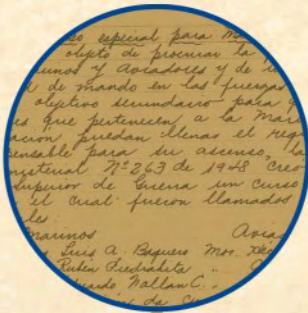 so especial para Ma
objeto de procurar la
unos y Aviadores y de
d de mando en las fuerzas
objetivo secundario para q
es que pertenecen a la Mar
ación puedan llenar el requ
pensable para su ascenso, la
nisterial Nº 263 de 1948 creó
Superior de Guerra un curso
el cual fueron llamados
les
Marinos Avia
Luis A. Baquero Mor. Is
Rubén Piedrahita
uardo Wallan C..